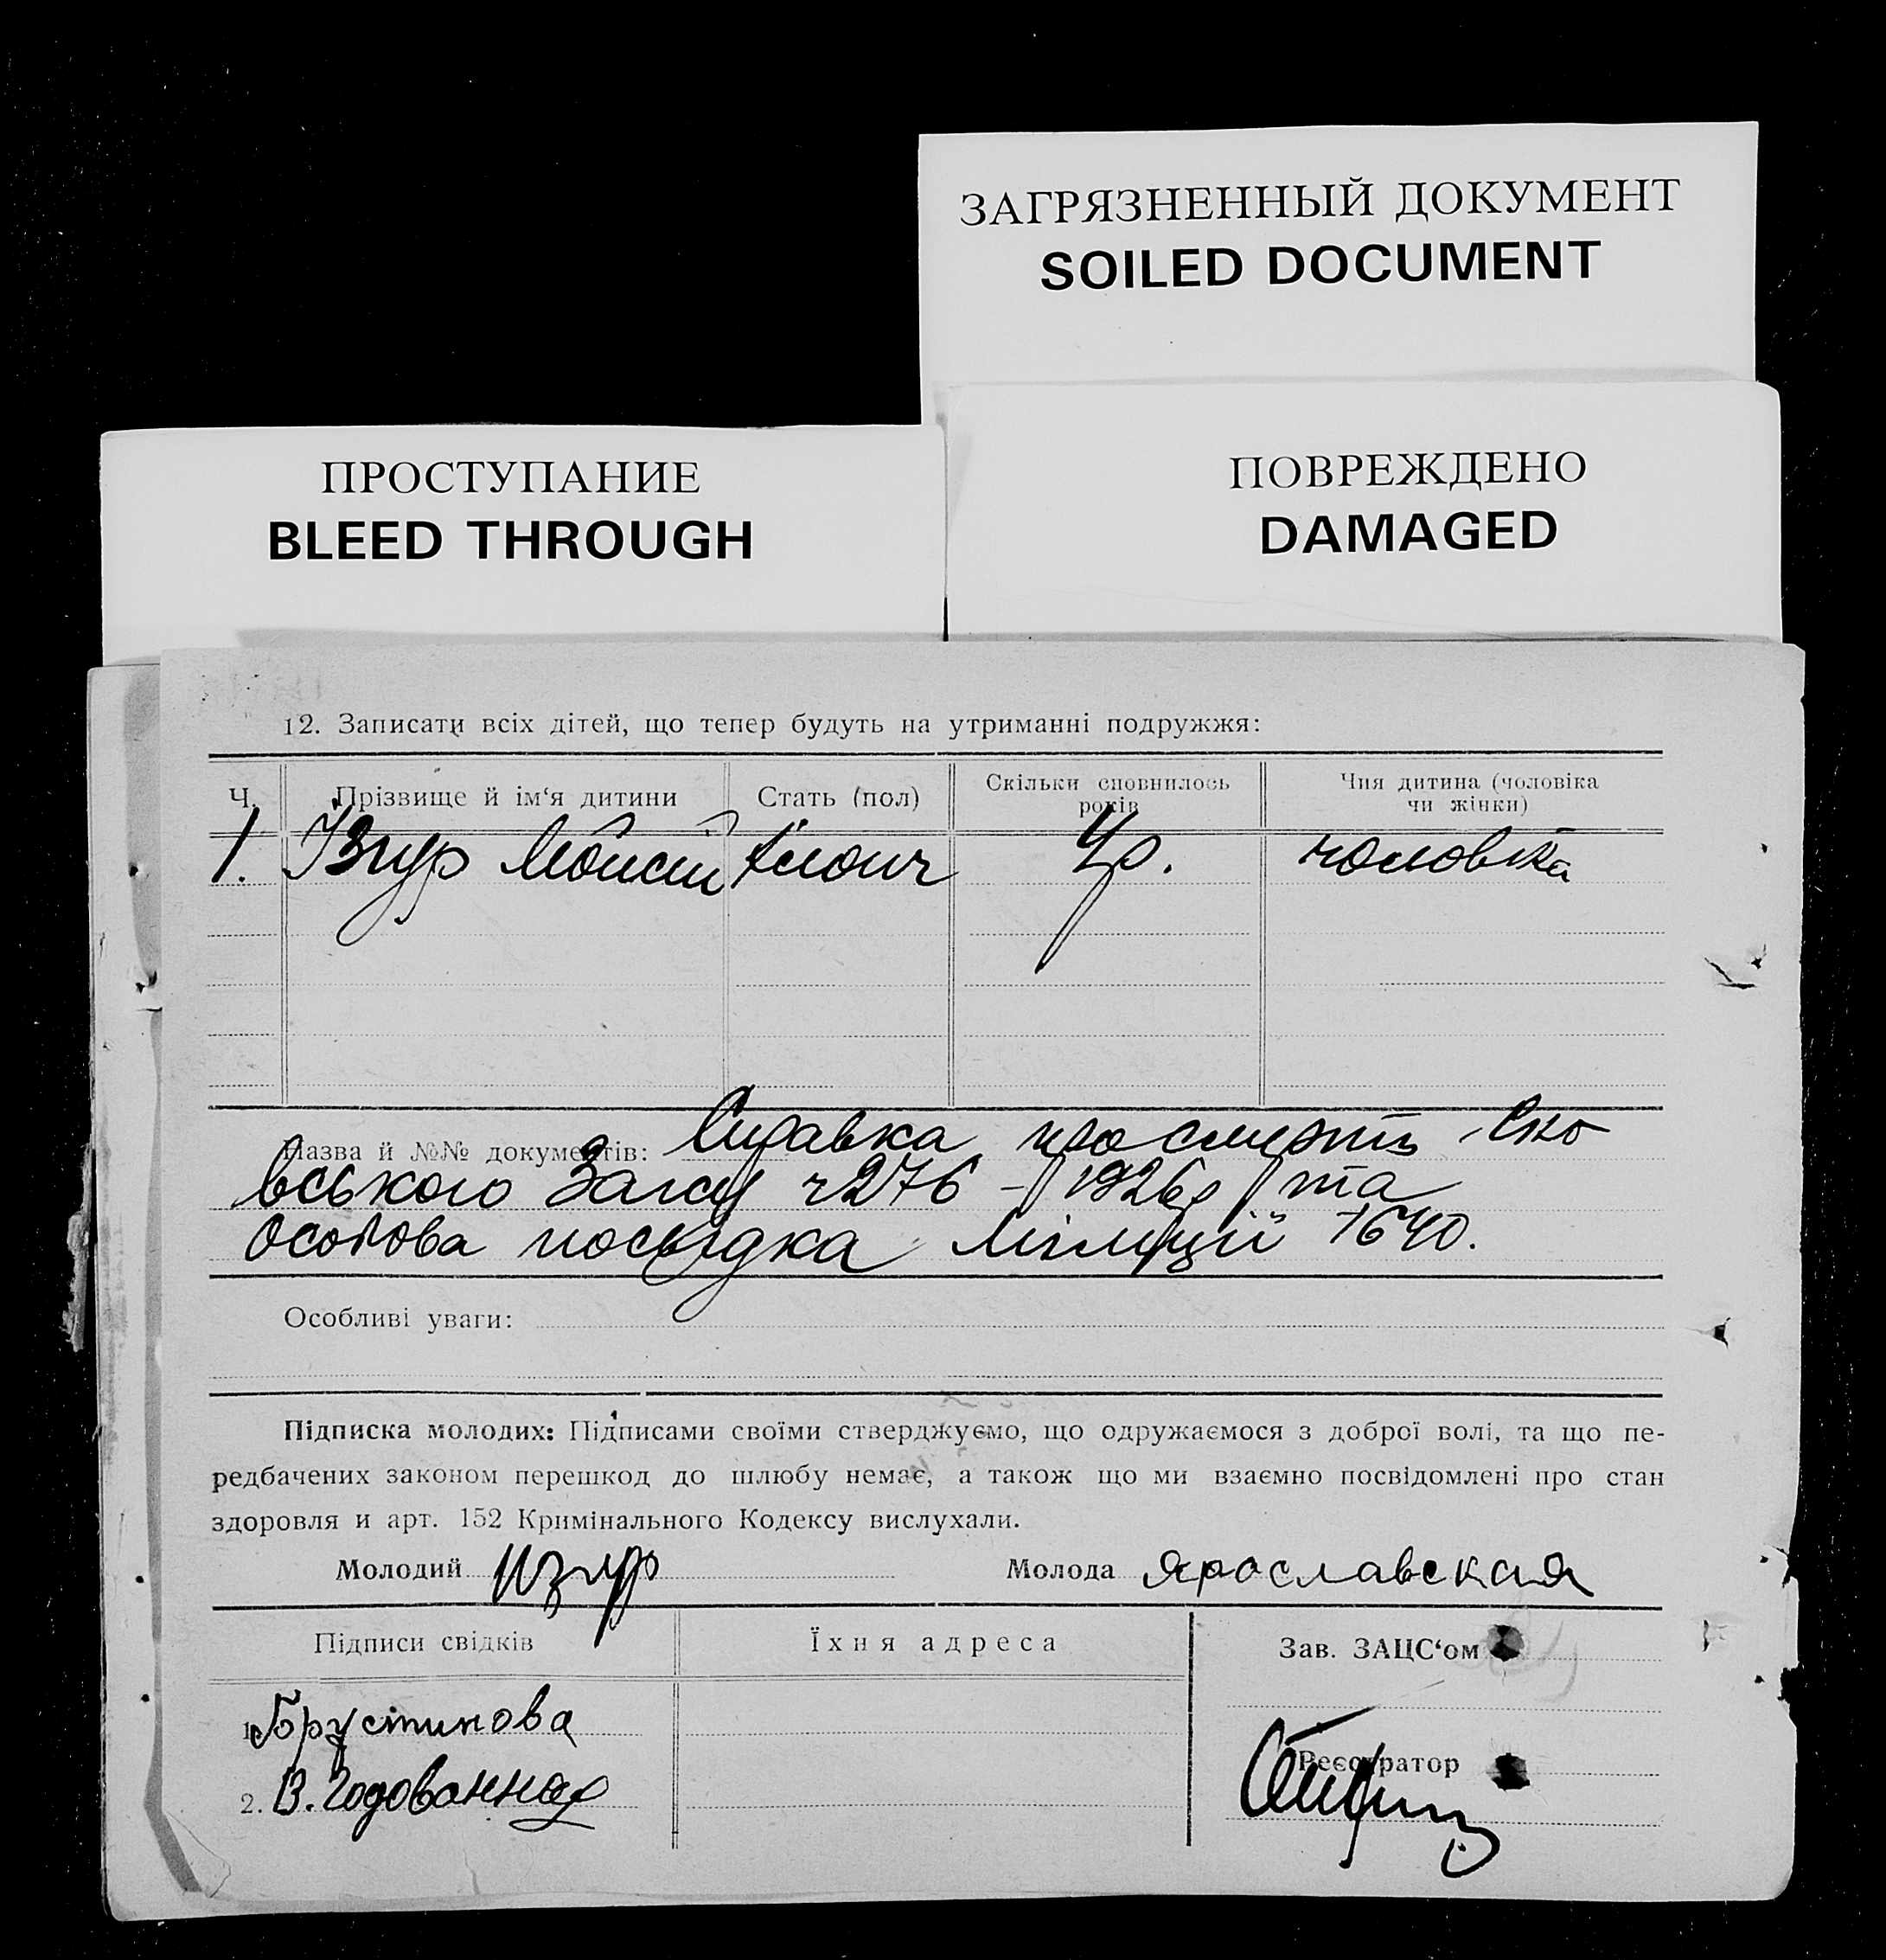 ЗАГРЯЗНЕННЫЙ ДОКУМЕНТ
SOILED DOCUMENT
ПРОСТУПАНИЕ
BLEED THROUGH
ПОВРЕЖДЕНО
DAMAGED
12. Записати всіх дітей, що тепер будуть на утриманні подружжя:
Ч. Прізвище й ім‘я дитини Стать (пол) Скільки сповнилось років Чия дитина (чоловіка чи жінки)
1. Ізгур Мойсій хлопч 4р. чоловіка
Назва й №№ документів: Справка про смерть
вського Загсу ч276 – 1926р та
особова посвідка міліції 1640.
Особливі уваги:
Підписка молодих: Підписами своїми стверджуємо, що одружаємося з доброї волі, та що пе-
редбачених законом перешкод до шлюбу немає, а також що ми взаємно посвідомлені про стан
здоровля и арт. 152 Кримінального Кодексу вислухали.
Молодий Изгур Молода Ярославская
Підписи свідків Їхня адреса Зав. ЗАЦС‘ом
1. Брустинова
Реєстратор
2. В. Годованная